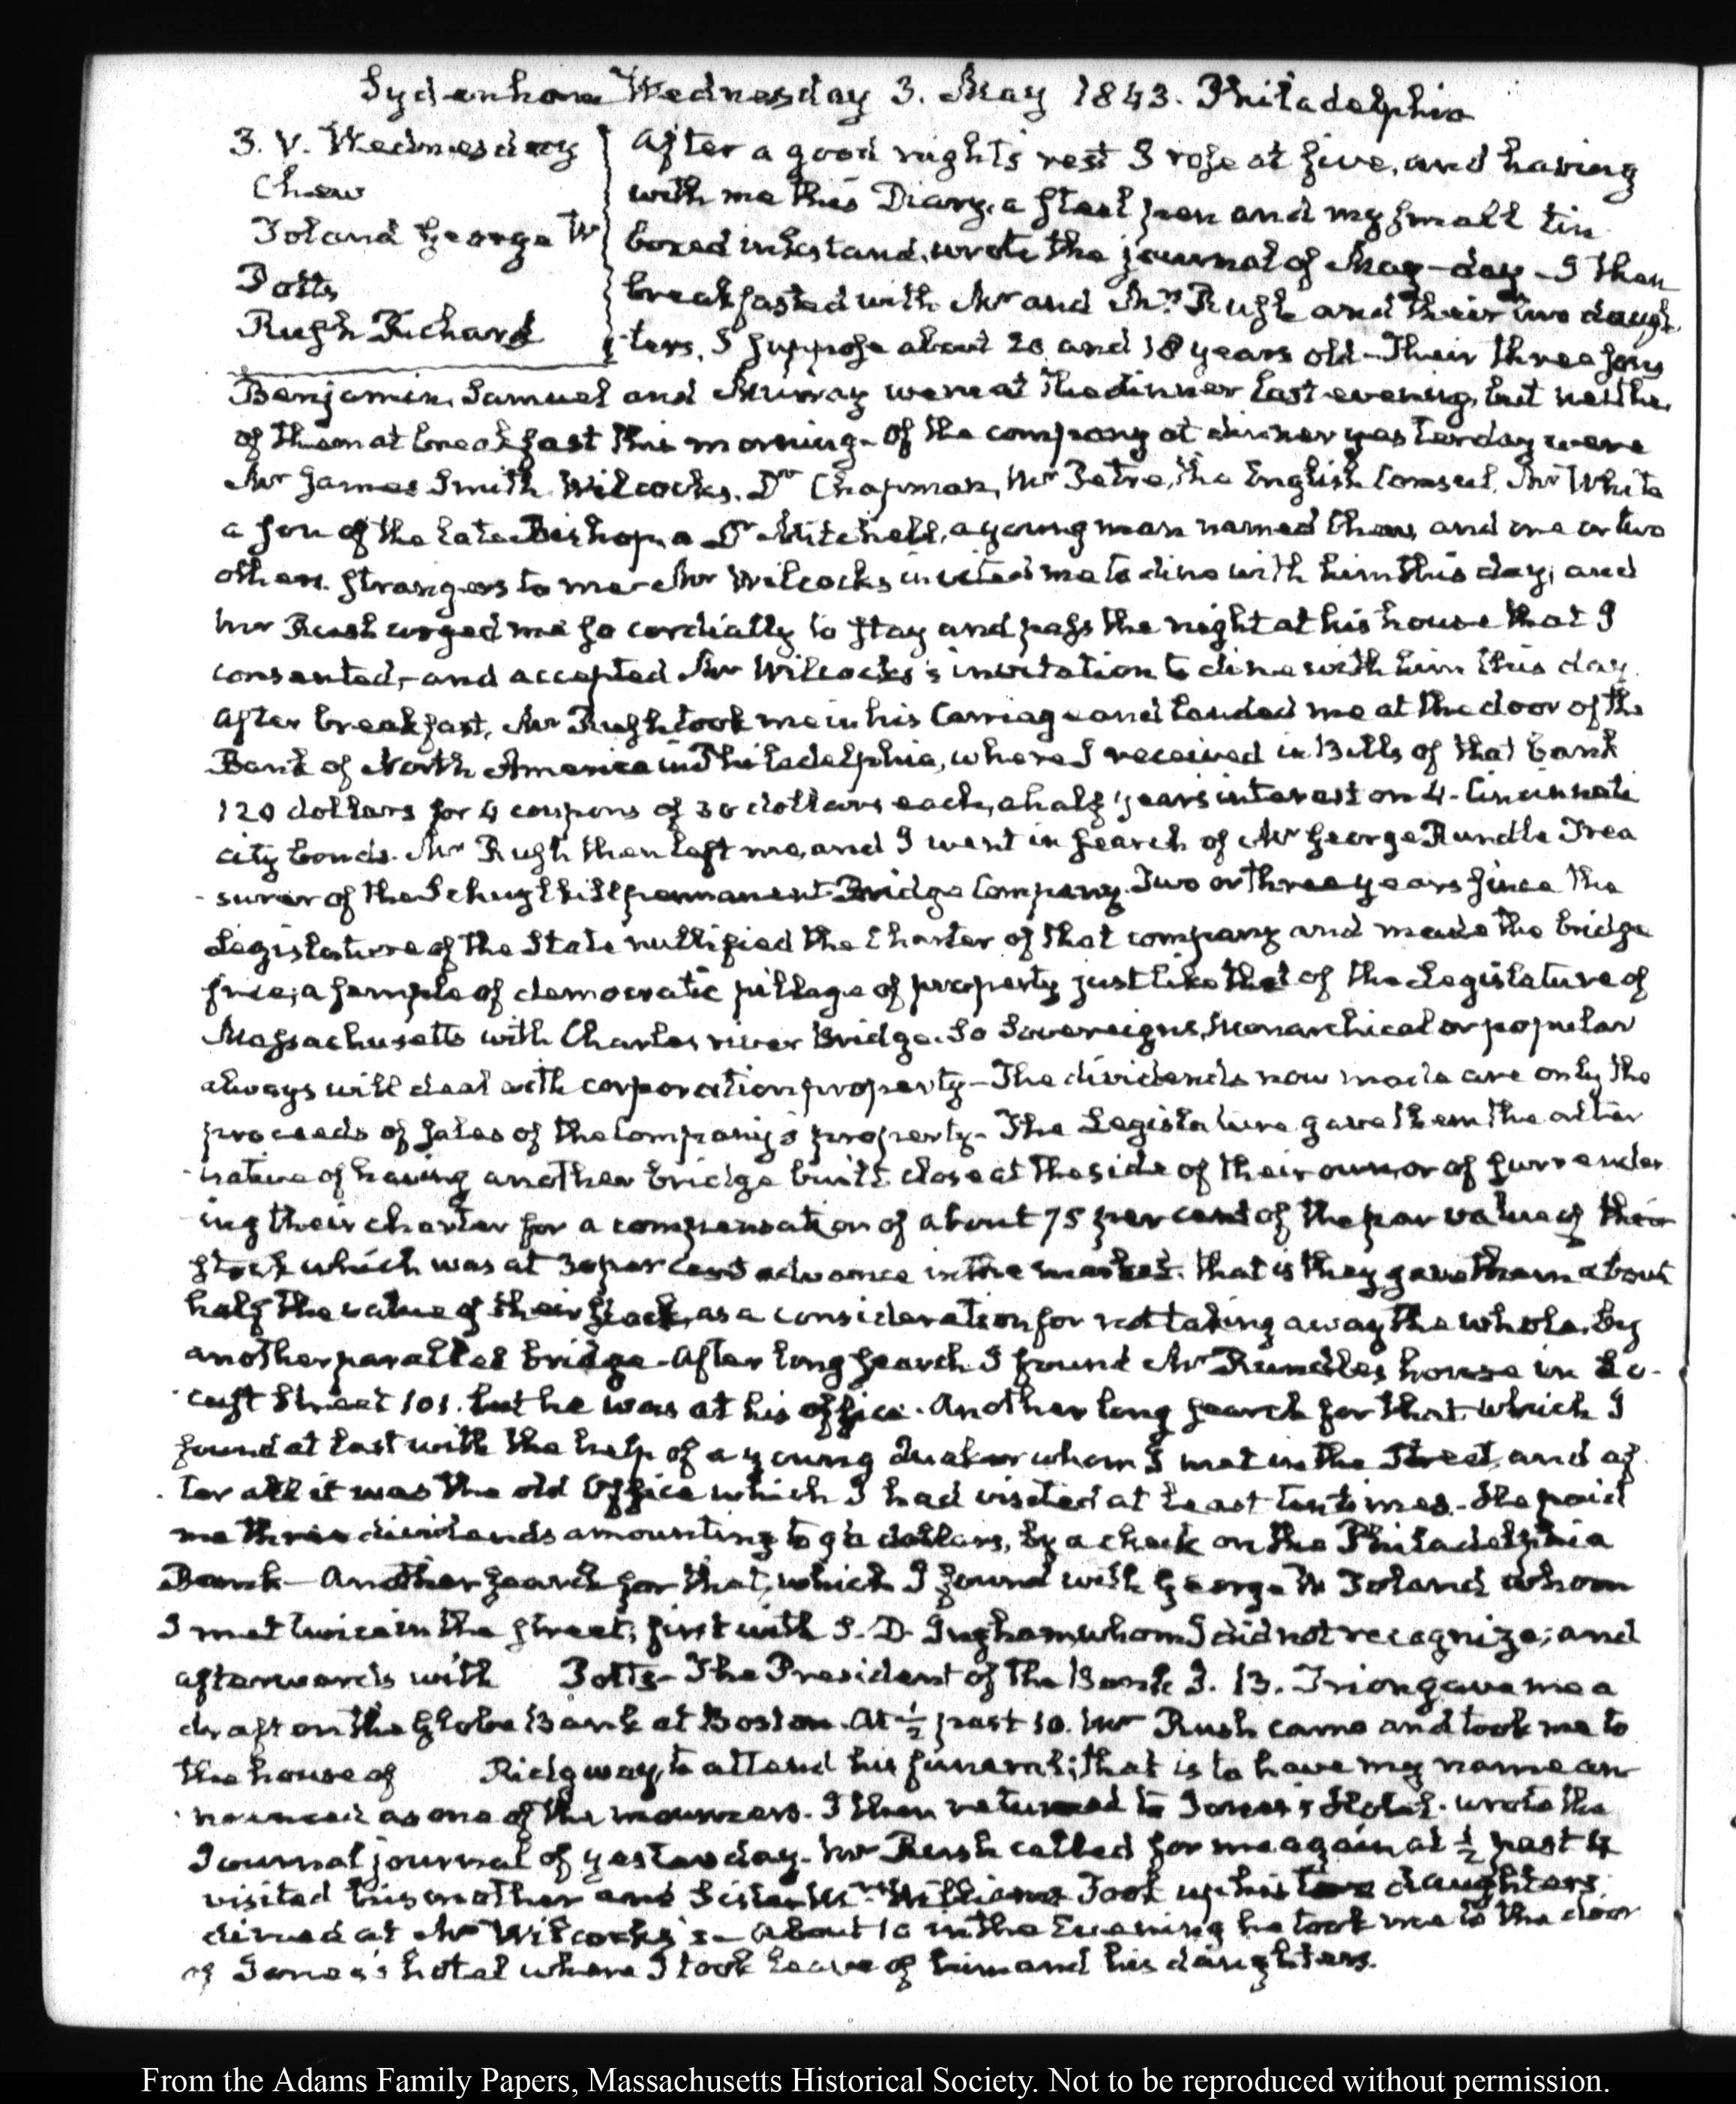 Sydenham Wednesday 3. May 1843. Philadelphia
3. V. Wednesday
Chew
Toland George W
Potts
Rush Richard
After a good night's rest I rose at five, and having
with me this Diary, a steel pen and my small tin
boxed inkstand, wrote the journal of May-day - I then
breakfasted with Mr and Mrs Rush and their two daugh
ters, I suppose about 20 and 18 years old - Their three sons
Benjamin, Samuel and Murray were at the dinner last evening, but neither
of them at breakfast this morning - Of the company at dinner yesterday were
Mr James Smith Wilcocks, Dr Chapman, Mr Petre, the English Consul, Mr White
a son of the late Bishop, a Dr Mitchell, a young man named Chew, and one or two
others strangers to me - Mr Wilcocks invited me to dine with him this day; and
Mr Rush urged me so cordially to stay and pass the night at his house that I
consented, - and accepted Mr Wilcocks's invitation to dine with him this day.
After breakfast, Mr Rush took me in his Carriage and landed me at the door of the
Bank of North America in Philadelphia, where I received in Bills of that bank
120 dollars for 4 coupons of 30 dollars each, a half year's interest on 4 - Cincinnati
city bonds. Mr Rush then left me, and I went in search of Mr George Rundle Trea
surer of the Schuylkill permanent Bridge Company. Two or three years since the
Legislature of the State nullified the Charter of that company and made the bridge
free; a sample of democratic pillage of property just like that of the Legislature of
Massachusetts with Charles river Bridge. So Sovereigns, Monarchical or popular
always will deal with corporation property - The dividends now made are only the
proceeds of sales of the Company's property - The Legislature gave them the alter
native of having another bridge built close at the side of their own, or of surrender
ing their charter for a compensation of about 75 per cent of the par value of their
stock which was at 30 per cent advance in the market. that is they gave them about
half the value of their stock, as a consideration for not taking away the whole, by
another parallel bridge - After long search I found Mr Rundle's house in Lo-
cust Street 101. but he was at his office. Another long search for that, which I
found at last with the help of a young Quaker whom I met in the Street, and af
ter all it was the old Office which I had visited at least ten times. He paid
me three dividends amounting to 90 dollars, by a check on the Philadelphia
Bank - Another search for that, which I found with George W Toland whom
I met twice in the street; first with S. D. Ingham, whom I did not recognize; and
afterwards with Potts - The President of the Bank J. B. Trion gave me a
draft on the Globe Bank at Boston. At ½ past 10. Mr Rush came and took me to
the house of Ridgway, to attend his funeral; that is to have my name an
nounced as one of the mourners. I then returned to Jones's Hotel. wrote the
Journal journal of yesterday. Mr Rush called for me again at ½ past 4
visited his mother and Sister Mrs Williams Took up his two daughters.
dined at Mr Wilcocks's - About 10 in the Evening he took me to the door
of Jones's hotel where I took leave of him and his daughters.
From the Adams Family Papers, Massachusetts Historical Society. Not to be reproduced without permission.